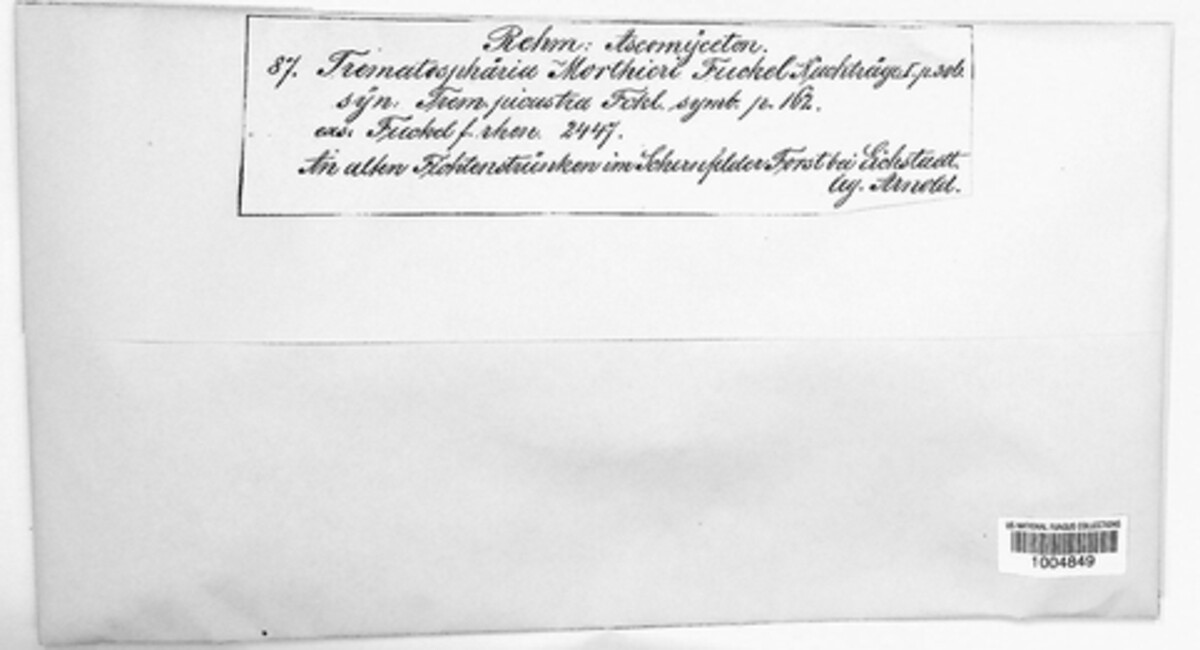 Rehm: Ascomyceten.
87. Trematosphäria Morthieri Fuckel Nachträge I. p. 306.
syn. Trem. picastra Fckl. symb. p. 162.
exs. Fuckel f. rhen. 2447.
An alten Fichtenstrünken im Schernfelder Forst bei Eichstadt.
leg. Arnold.
US NATIONAL FUNGUS COLLECTIONS
1004849